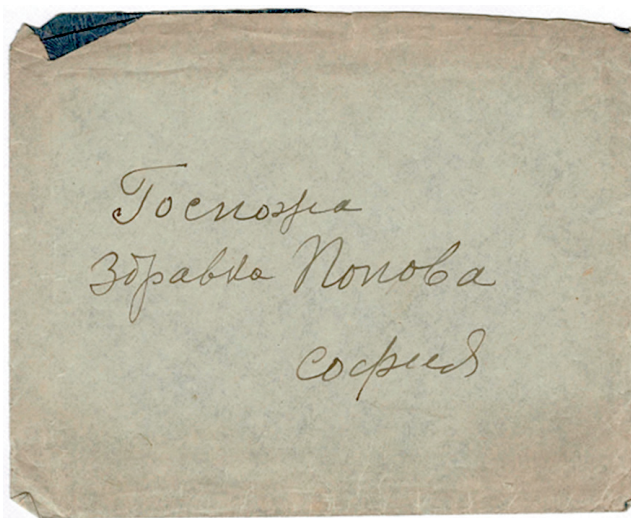 Госпожа
Здравка Попова
София